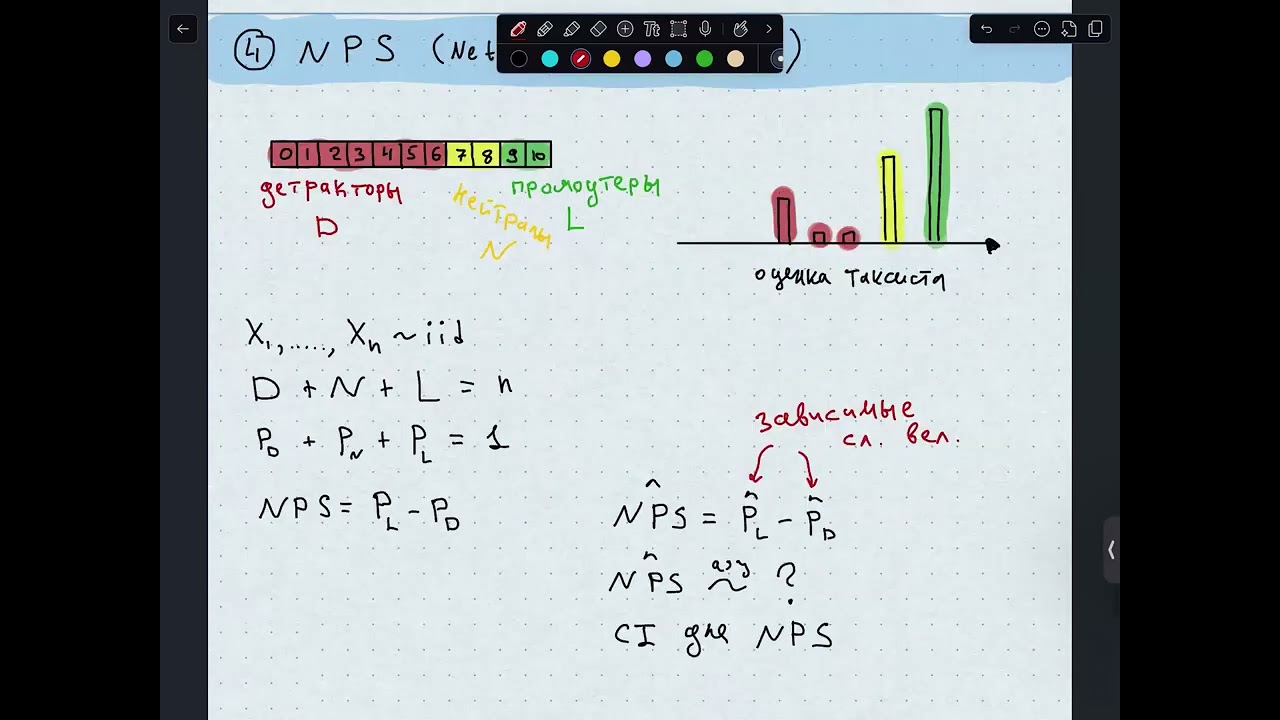 ④ NPS (Net )
0 1 2 3 4 5 6 7 8 9 10
детракторы
D
нейтралы
N
промоутеры
L
оценка таксиста
X₁, ....., Xₙ ~ iid
D + N + L = n
P_D + P_N + P_L = 1
NPS = P_L - P_D
зависимые
сл. вел.
N\hat{P}S = \hat{P}_L - \hat{P}_D
N\hat{P}S \overset{asy}{\sim} ?
CI для NPS
Tt